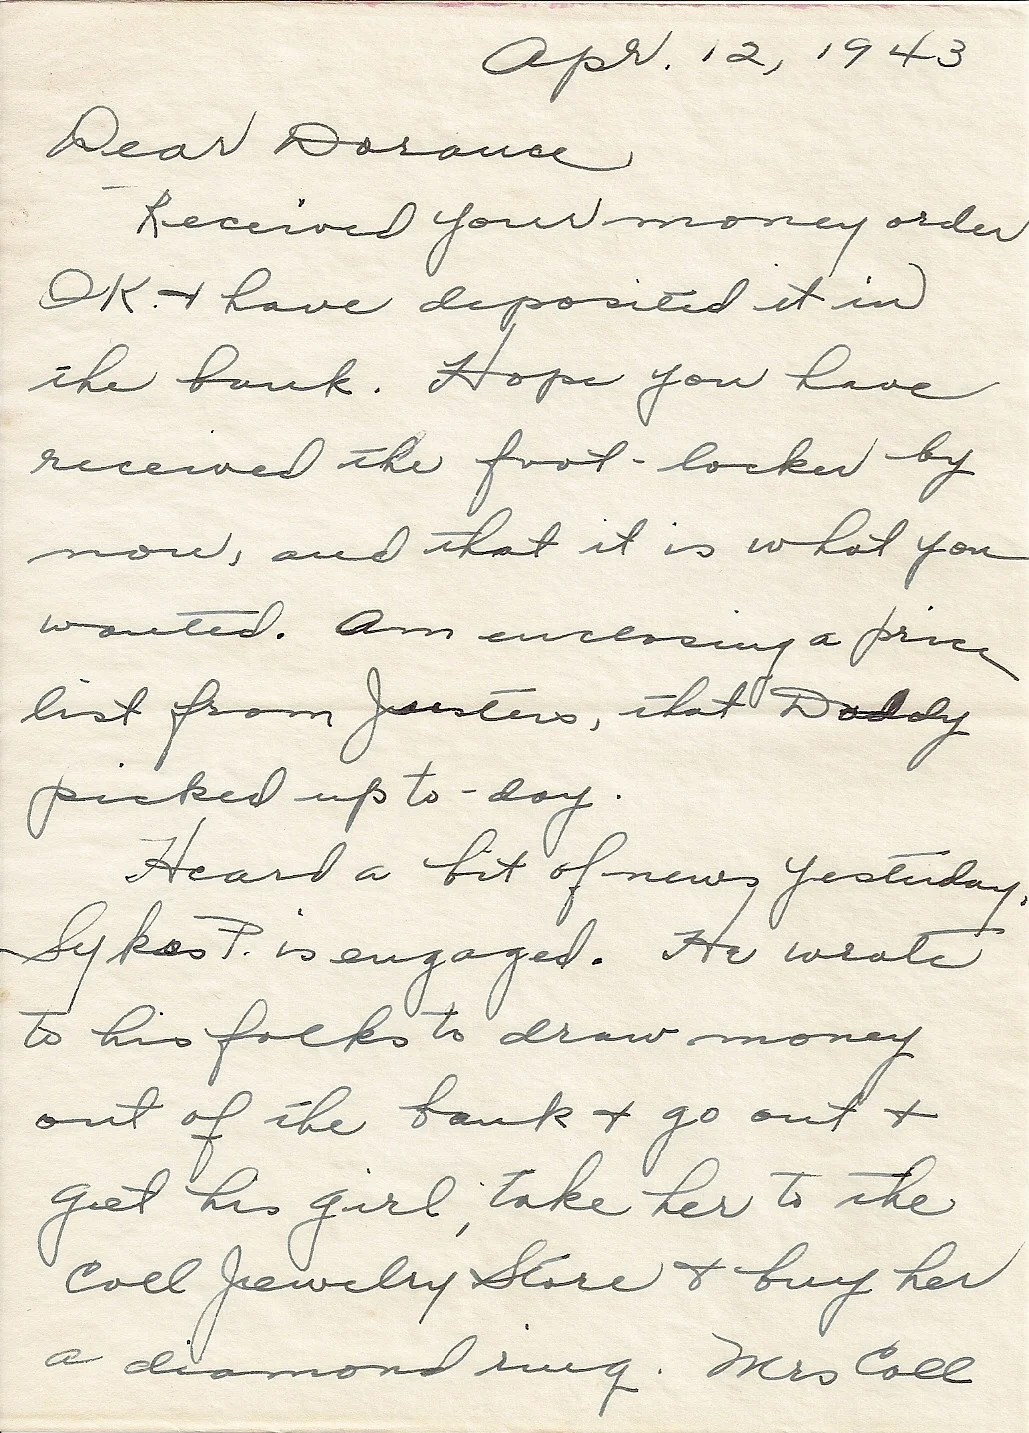 Apr. 12, 1943
Dear Dorance
Received your money order
OK. + have deposited it in
the bank. Hope you have
received the foot-locker by
now, and that it is what you
wanted. Am enclosing a price
list from Justers, that Daddy
picked up to-day.
Heard a bit of news yesterday.
Sykes P. is engaged. He wrote
to his folks to draw money
out of the bank + go out +
get his girl, take her to the
Coll Jewelry Store + buy her
a diamond ring. Mrs Coll